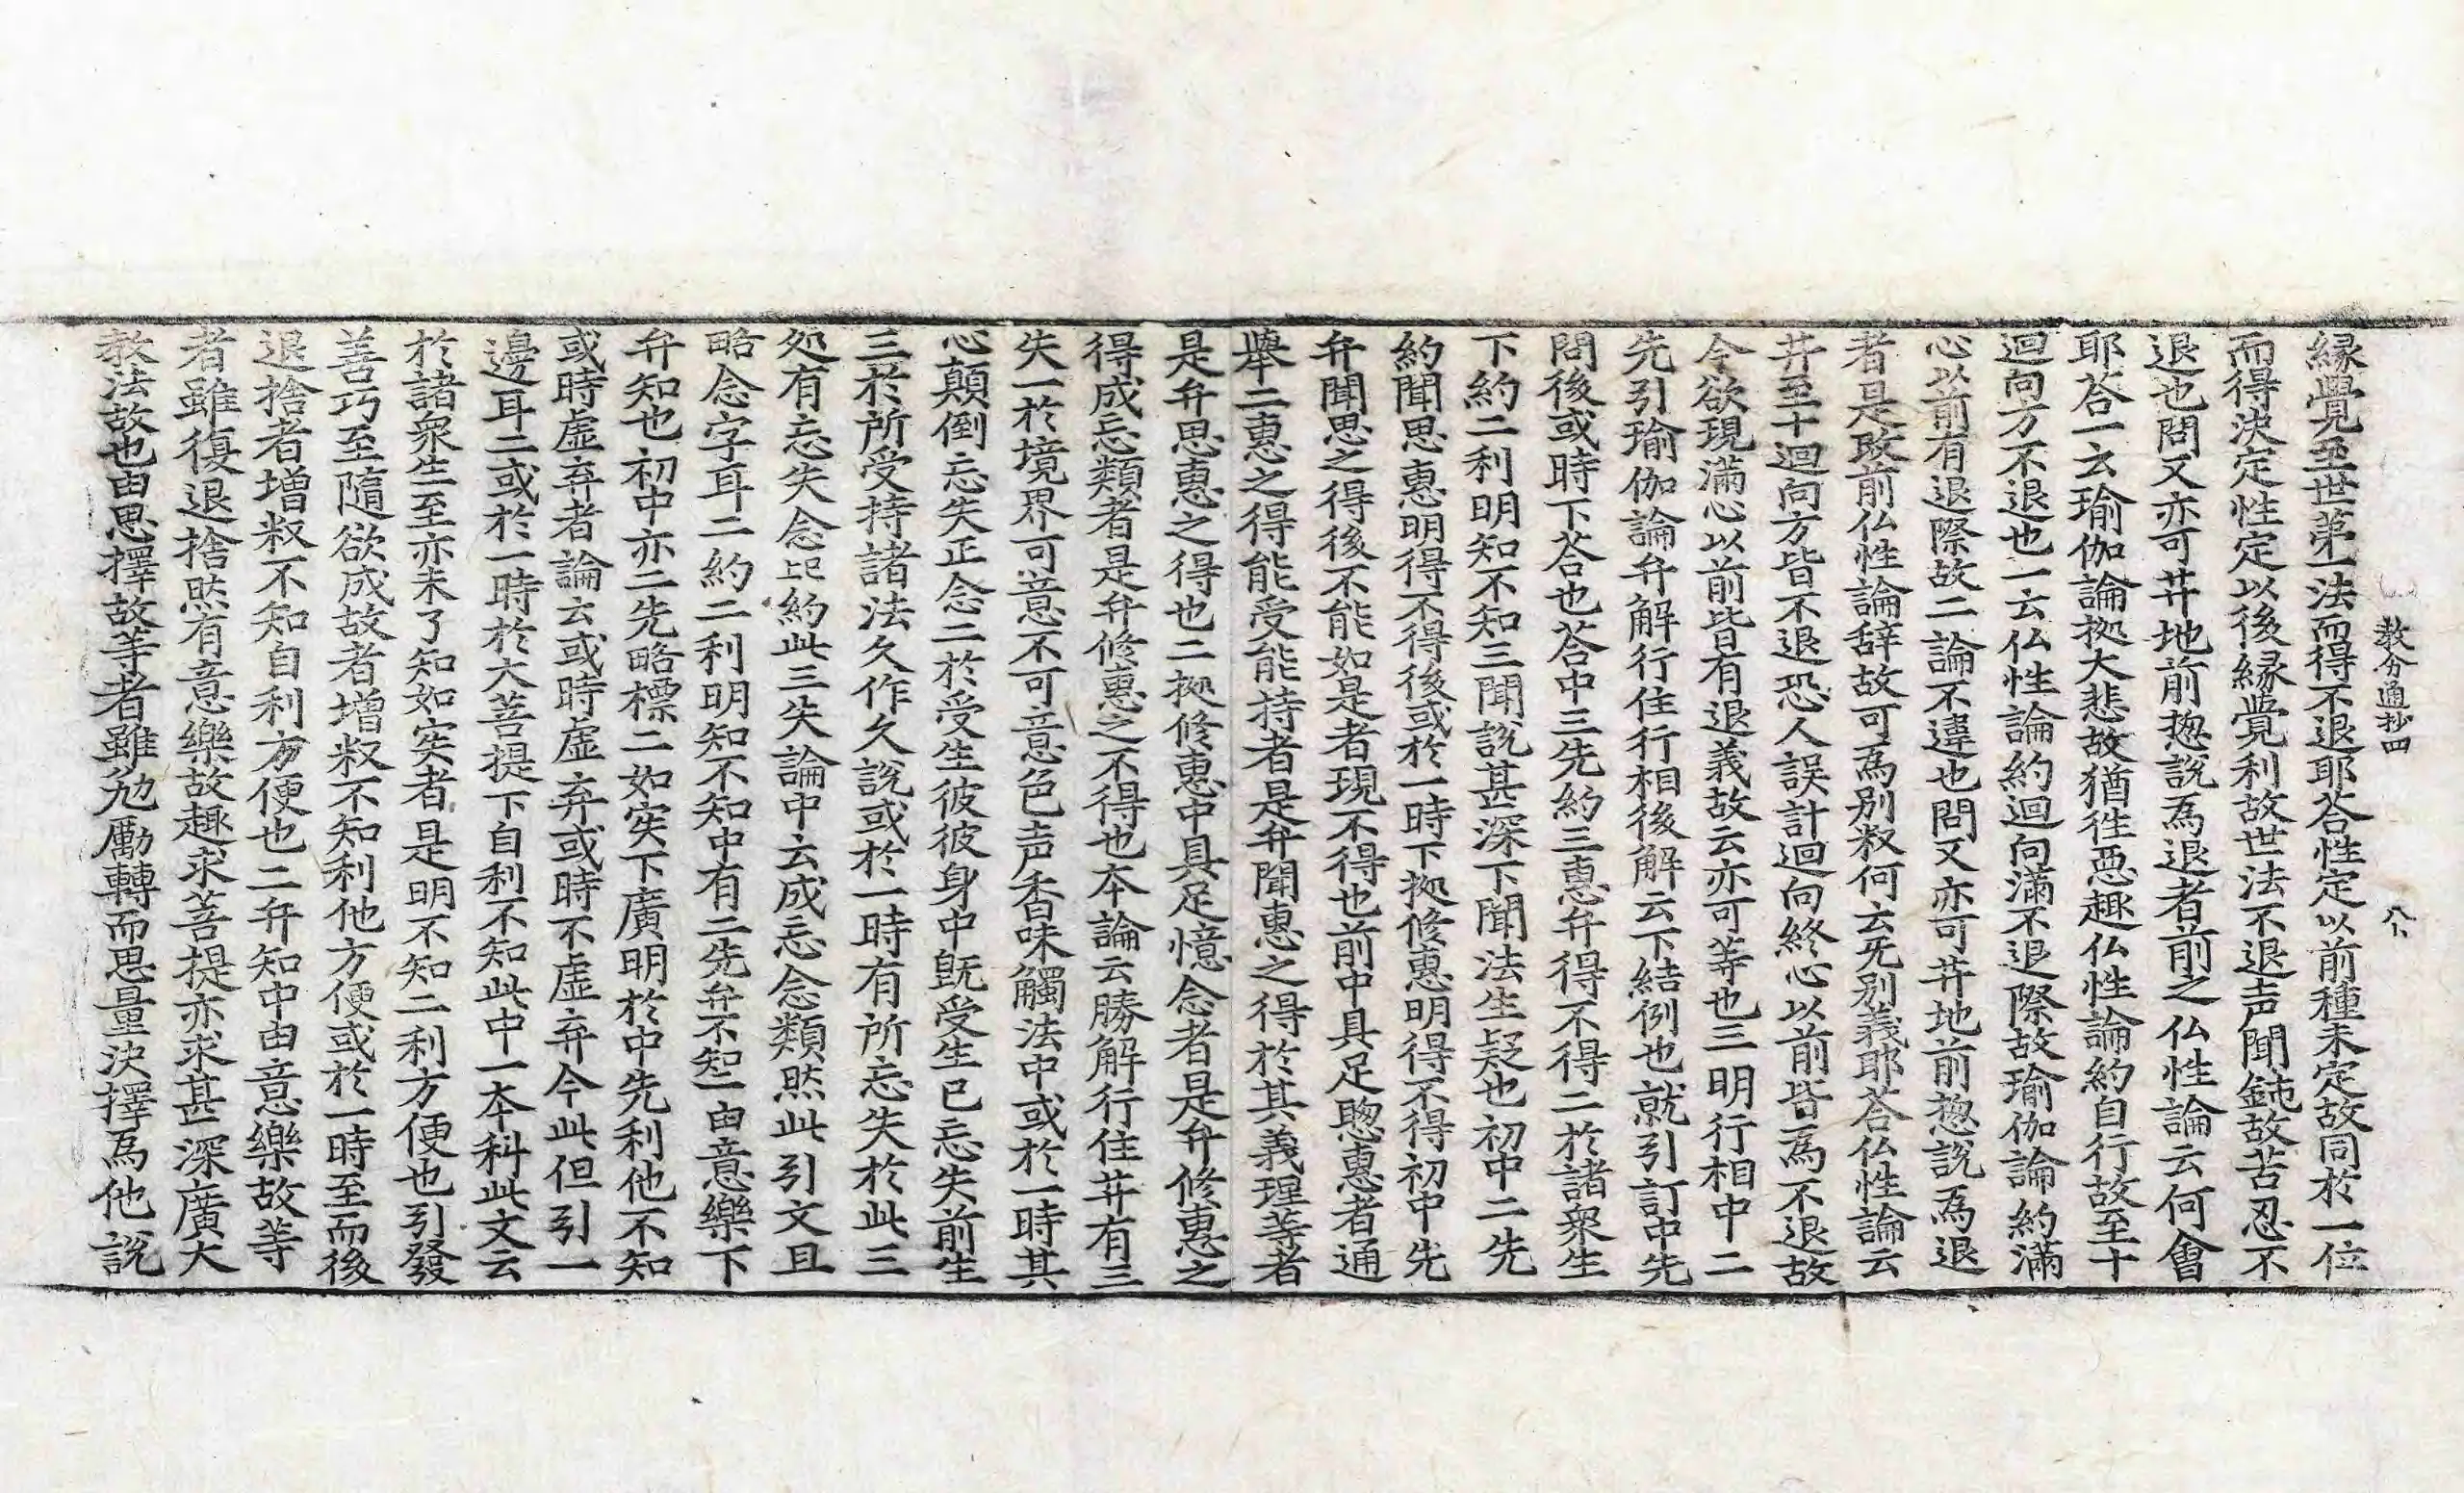 教分通抄四　八
緣覺至世第一法而得不退耶荅性定以前種未定故同於一位
而得決定性定以後緣覺利故世法不退声聞鈍故苦忍不
退也問又亦可菩地前惣說為退者前之仏性論云何會
耶荅一云瑜伽論拠大悲故猶徃恶趣仏性論約自行故至十
迴向方不退也一云仏性論約迴向滿不退際故瑜伽論約滿
心以前有退際故二論不違也問又亦可菩地前惣說為退
者是敗前仏性論辞故可為別叙何云旡別義耶荅仏性論云
菩至十迴向方皆不退恐人誤計迴向終心以前皆為不退故
今欲現滿心以前皆有退義故云亦可等也三明行相中二
先引瑜伽論弁解行住行相後解云下結例也就引訂中先
問後或時下荅也荅中三先約三惠弁得不得二於諸衆生
下約二利明知不知三聞說甚深下聞法生疑也初中二先
約聞思惠明得不得後或於一時下拠修惠明得不得初中先
弁聞思之得後不能如是者現不得也前中具足聦惠者通
舉二惠之得能受能持者是弁聞惠之得於其義理等者
是弁思惠之得也二拠修惠中具足憶念者是弁修惠之
得成忘類者是弁修惠之不得也本論云勝解行住菩有三
失一於境界可意不可意色声香味觸法中或於一時其
心顛倒忘失正念二於受生彼彼身中旣受生已忘失前生
三於所受持諸法久作久說或於一時有所忘失於此三
処有忘失念上已約此三失論中云成忘念類然此引文且
略念字耳二約二利明知不知中有二先弁不知一由意樂下
弁知也初中亦二先略標二如実下廣明於中先利他不知
或時虛弃者論云或時虛弃或時不虛弃今此但引一
邊耳二或於一時於大菩提下自利不知此中一本科此文云
於諸衆生至亦未了知如実者是明不知二利方便也引發
善巧至隨欲成故者增叙不知利他方便或於一時至而後
退捨者增叙不知自利方便也二弁知中由意樂故等
者雖復退捨然有意樂故趣求菩提亦求甚深廣大
教法故也由思擇故等者雖勉勵轉而思量決擇為他說